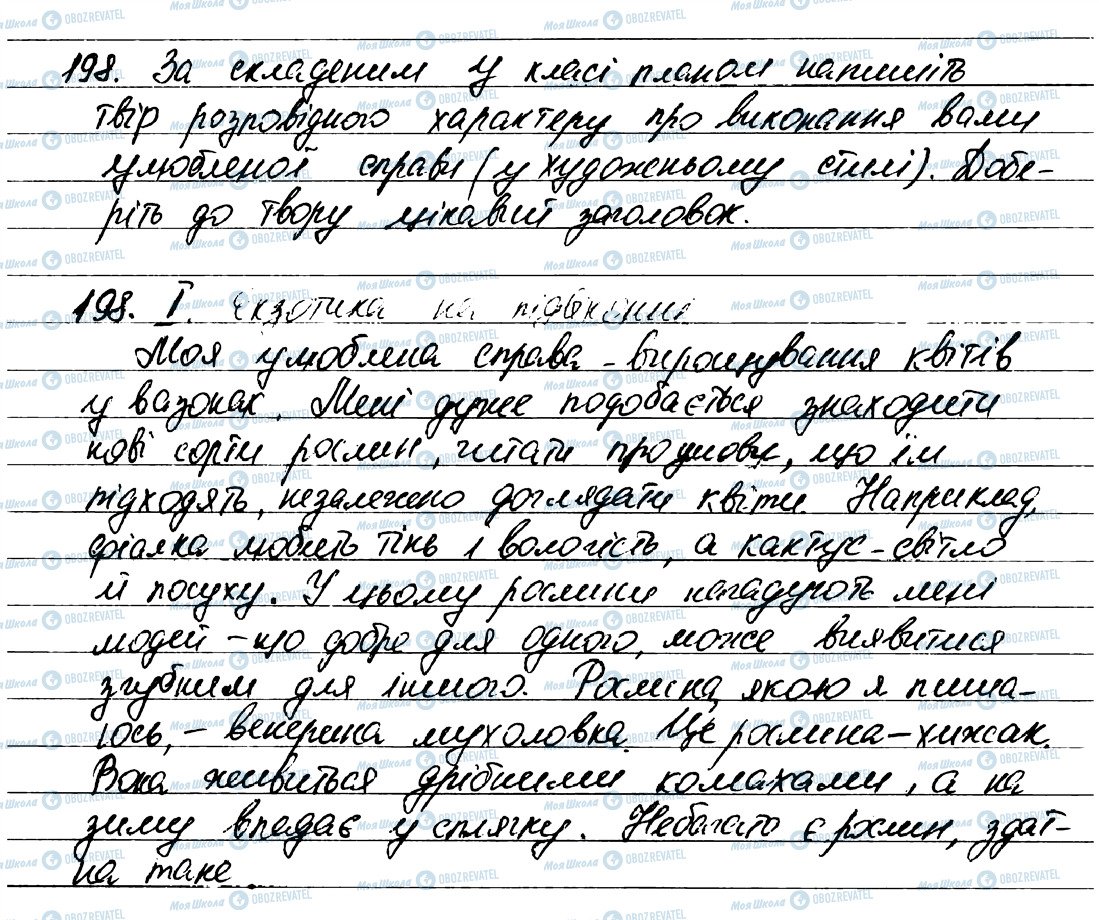 198. За складеним у класі планом напишіть
твір розповідного характеру про виконання вами
улюбленої справи (у художньому стилі). Добе-
ріть до твору цікавий заголовок.
198. I. Екзотика на підвіконні
Моя улюблена справа – вирощування квітів
у вазонах. Мені дуже подобається знаходити
нові сорти рослин, читати про умови, що їм
підходять, незалежно доглядати квіти. Наприклад,
фіалка любить тінь і вологість, а кактус – світло
й посуху. У цьому рослини нагадують мені
людей – що добре для одного, може виявитися
згубним для іншого. Рослина, якою я пиша-
юсь, – венерина мухоловка. Це рослина – хижак.
Вона живиться дрібними комахами, а на
зиму впадає у сплячку. Небагато є рослин, здат-
на таке